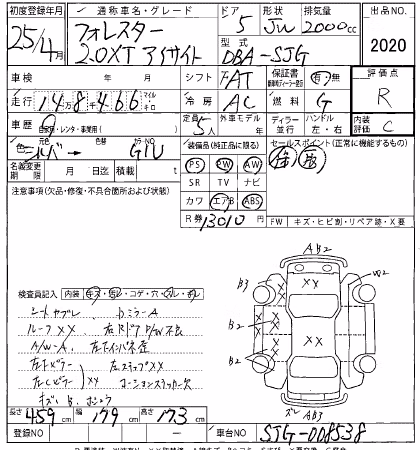 初度登録年月 通称車名・グレード ドア 形状 排気量 出品NO.
25/4月 フォレスター 2.0XT アイサイト 5 JW 2000cc 2020
型式 DBA-SJG
車検 年 月 シフト FAT 保証書 有・無 評価点
走行 1 4万 8千 4 6 6 マイル キロ 冷房 AC 燃料 G R
車歴 自家用・レンタ・事業用( ) 定員 5人 外車モデル 年 ディーラー 並行 ハンドル 左・右 内装評価 C
色 シルバー → 色替 カラーNO G1U 装備品(純正品に限る) セールスポイント(正常に機能するもの)
名義変更期限 月 日迄 積載 t PS PW AW
注意事項(欠品・修復・不具合箇所および状態) SR TV ナビ
カワ エアB ABS
R券 13010円 FW キズ・ヒビ割・リペア跡・X要
AB2
検査員記入 内装
シートヤブレ カガミラーA
ルーフXX 右RドアP/W不良
A/W-A 左Fインパネ歪
左Fピラー 左ステップXX
左Cピラー XX コーションステッカー欠
XX
B3
B2
B2
XX
ズレ AB3
長さ 459 幅 179 高さ 173
登録NO - 車台NO SJG-008538